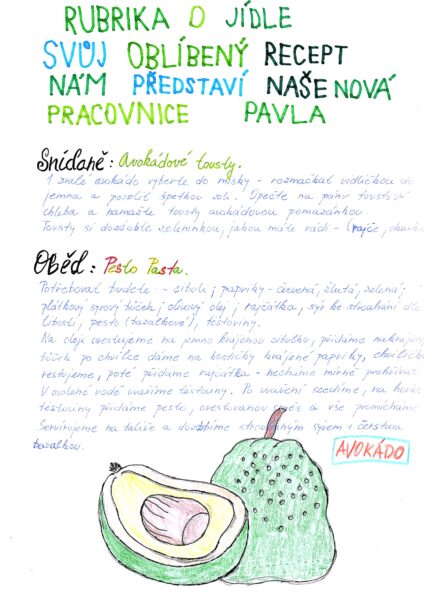 RUBRIKA O JÍDLE
SVŮJ OBLÍBENÝ RECEPT
NÁM PŘEDSTAVÍ NAŠE NOVÁ
PRACOVNICE PAVLA
Snídaně: Avokádové tousty.
1 zralé avokádo vyberte do misky - rozmačkat vidličkou do
jemna a posolit špetkou soli. Opečte na pánvi toustový
chleba a namažte tousty avokádovou pomazánkou.
Tousty si dozdobte zeleninkou, jakou máte rádi - (rajče,
Oběd: Pesto Pasta.
Potřebovat budete: - cibuli, papriky - červená, žlutá, zelená,
plátkový sýrový, olivový olej, rajčátka, sýr ke strouhání dle
libosti, pesto (bazalkové), těstoviny.
Na oleji orestujeme na jemno krájenou cibulku, přidáme
po chvilce dáme na kostičky krájené papriky, chviličku
restujeme, poté přidáme rajčátka - necháme mírně
V osolené vodě uvaříme těstoviny. Po uvaření scedíme, na
těstoviny přidáme pesto, orestovanou směs a vše promícháme.
Servírujeme na talíře a dozdobíme strouhaným sýrem i čerstvou
bazalkou.
AVOKÁDO